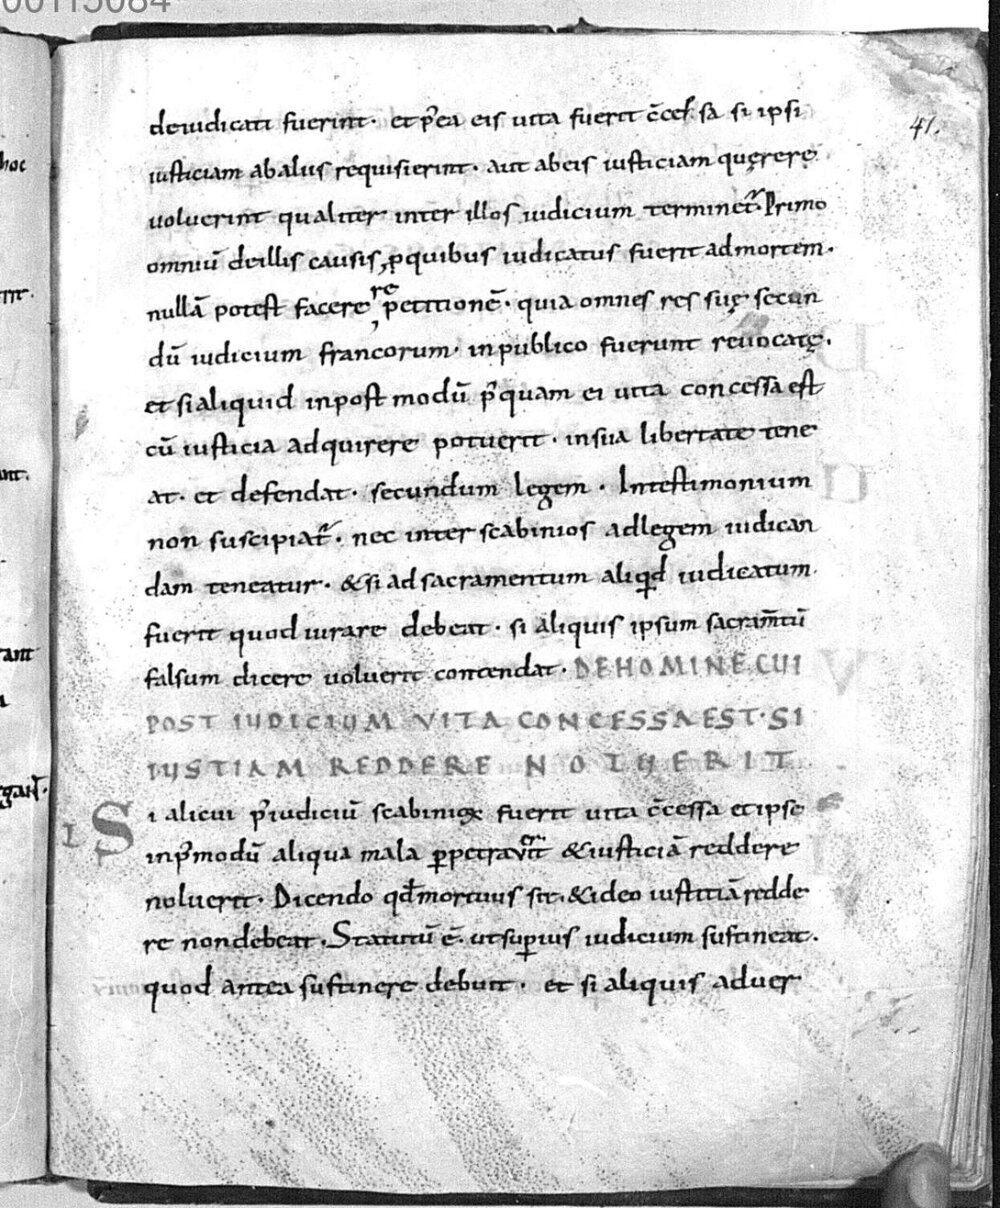 00115084
41.
deiudicati fuerint· et p̄ea eis uita fuerit c̄cessa si ipsi
iusticiam ab aliis requisierint· aut ab eis iusticiam quęrere
uoluerint qualiter inter illos iudicium terminet᷑. Primo
omniū de illis causis, ꝓ quibus iudicatus fuerit ad mortem·
nullā potest facere re petitionē· quia omnes res suę secun
dū iudicium francorum· in publico fuerunt reuocatę.
et si aliquid in post modū p̄quam ei uita concessa est
cū iusticia adquirere potuerit· in sua libertate tene
at· et defendat· secundum legem· In testimonium
non suscipiat᷑· nec inter scabinios ad legem iudican
dam teneatur· & si ad sacramentum aliqd̄ iudicatum
fuerit quod iurare debeat· si aliquis ipsum sacram̄tū
falsum dicere uoluerit contendat· DE HOMINE CUI
POST IUDICIUM VITA CONCESSA EST· SI
IUSTIAM REDDERE NOLUERIT
I Si alicui p̄ iudiciū scabiniox fuerit uita c̄cessa et ipse
in p̄modū aliqua mala ꝑpetrauerit & iusticiā reddere
noluerit· Dicendo qd̄ mortuus sit· & ideo iustitiā redde
re non debeat· Statutū ē· ut suꝑius iudicium sustineat·
quod antea sustinere debuit· et si aliquis aduer
hoc
ant